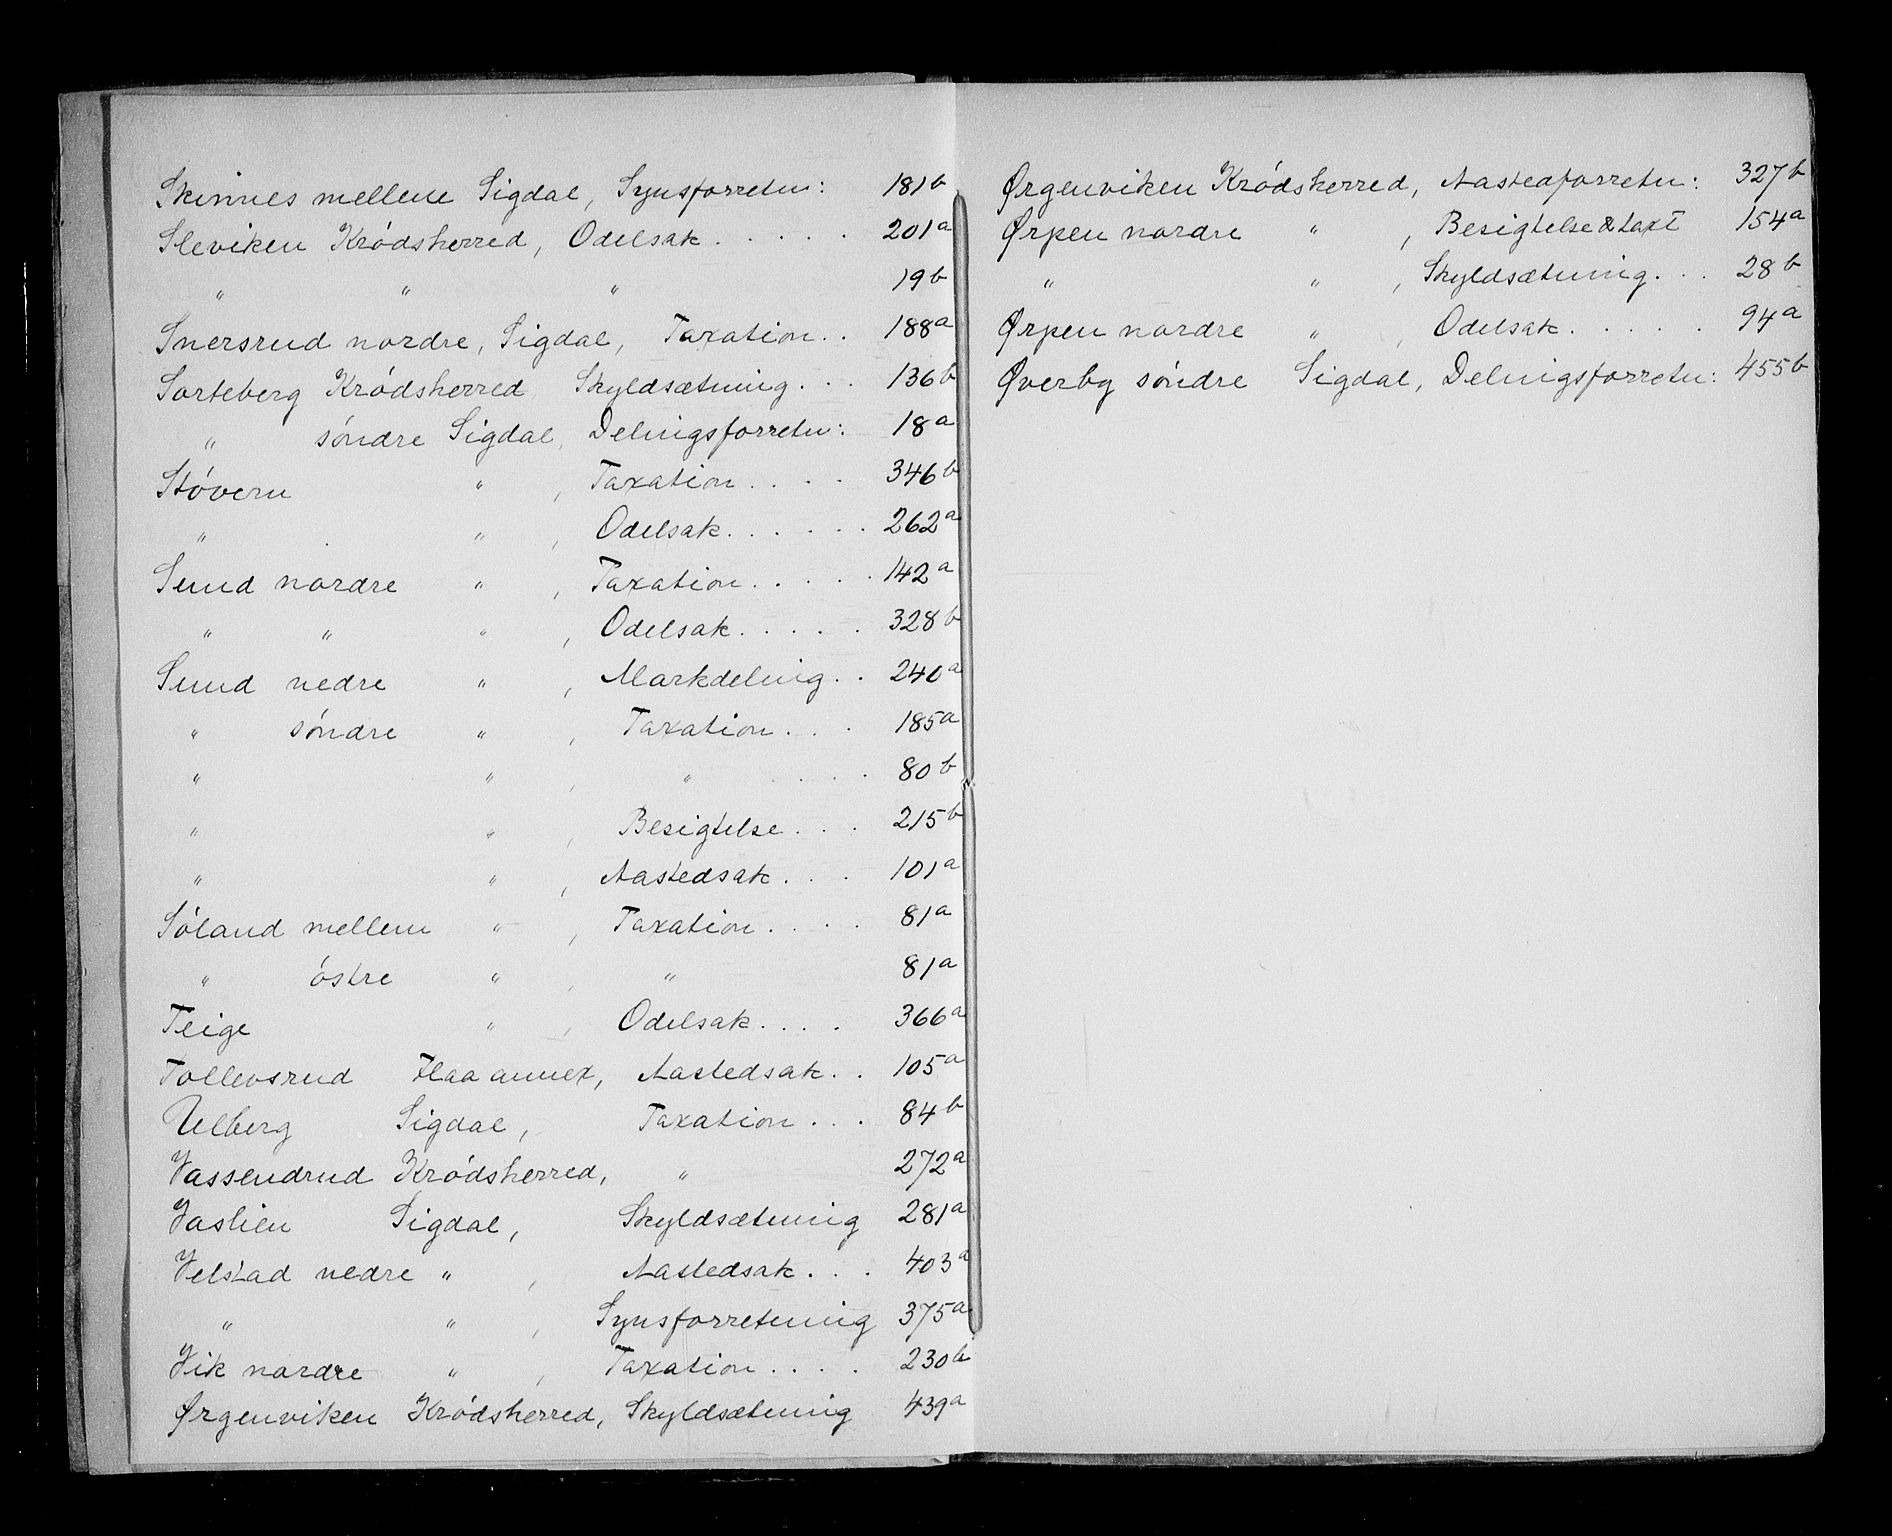 Skinnes mellem Sigdal, Synsforretn: 181b
Sleviken Krødsherred, Odelsak ..... 201a
" " " 19b
Snersrud nordre, Sigdal, Taxation.. 188a
Sorteberg Krødsherred Skyldsætning... 136b
" søndre Sigdal, Delingsforretn: 18a
Støvern " , Taxation.... 346b
" " , Odelsak...... 262a
Sund nordre " , Taxation..... 142a
" " " , Odelsak..... 328b
Sund nedre " , Markdeling.. 240a
" søndre " , Taxation... 185a
" " , " .... 80b
" " , Besigtelse... 215b
" " , Aastedsak... 101a
Søland mellem " , Taxation.... 81a
" østre " , " 81a
Teige " , Odelsak.... 366a
Tollevsrud Flaa annex, Aastedsak.. 105a
Ulberg Sigdal, Taxation... 84b
Vassendrud Krødsherred, " 272a
Vaslien Sigdal, Skyldsætning 281a
Velstad nedre " , Aastedsak... 403a
" " , Synsforretning 375a
Vik nordre " , Taxation.... 230b
Ørgenviken Krødsherred, Skyldsætning 439a
Ørgenviken Krødsherred, Aastedforretn: 327b
Ørpen nordre " , Besigtelse & taxt 154a
" " , Skyldsætning... 28b
Ørpen nordre " , Odelsak..... 94a
Øverby søndre Sigdal, Delingsforretn: 455b